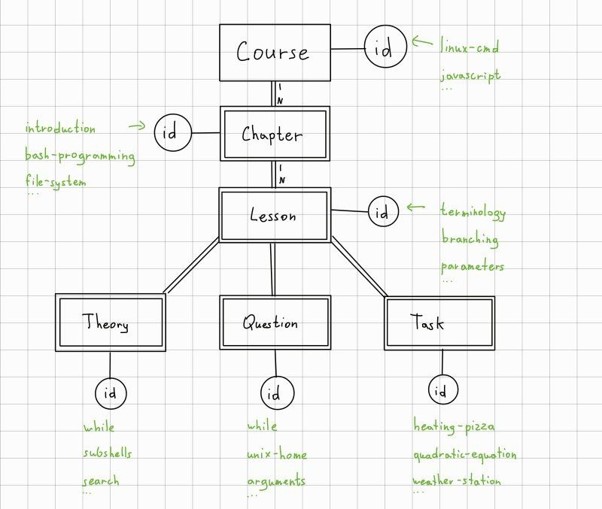 Course
id
linux-cmd
javascript
...
1
N
introduction
bash-programming
file-system
...
id
Chapter
1
N
Lesson
id
terminology
branching
parameters
...
Theory
Question
Task
id
id
id
while
subshells
search
...
while
unix-home
arguments
...
heating-pizza
quadratic-equation
weather-station
...